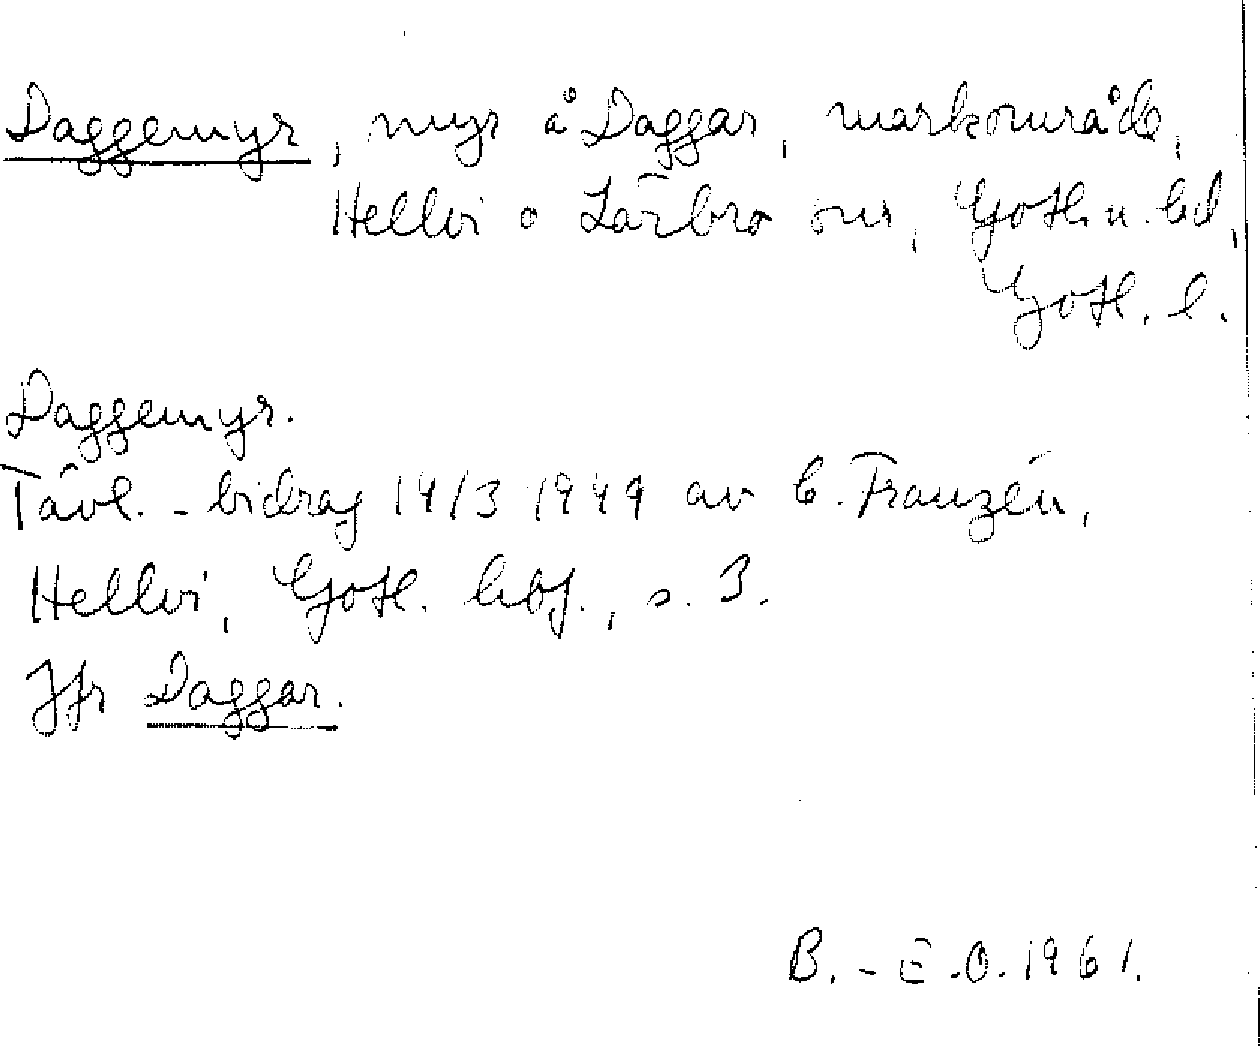 Daggemyr, myr å Daggar, markområde,
Hellvi o Lärbro snr, Gotl. n. hd,
Gotl. l.
Daggemyr.
Tävl.-bidrag 14/3 1949 av C. Franzén,
Hellvi, Gotl. hbf., s. 3.
Jfr Daggar.
B.-E.O. 1961.